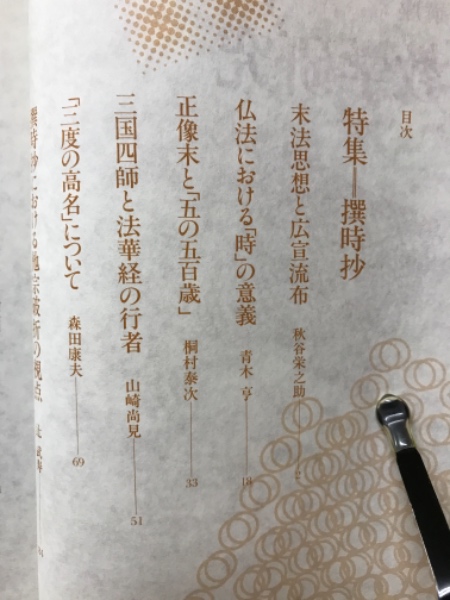 目次
特集＝撰時抄
末法思想と広宣流布 秋谷栄之助 2
仏法における「時」の意義 青木 亨 18
正像末と「五の五百歳」 桐村泰次 33
三国四師と法華経の行者 山崎尚見 51
「三度の高名」について 森田康夫 69
撰時抄における
の視点